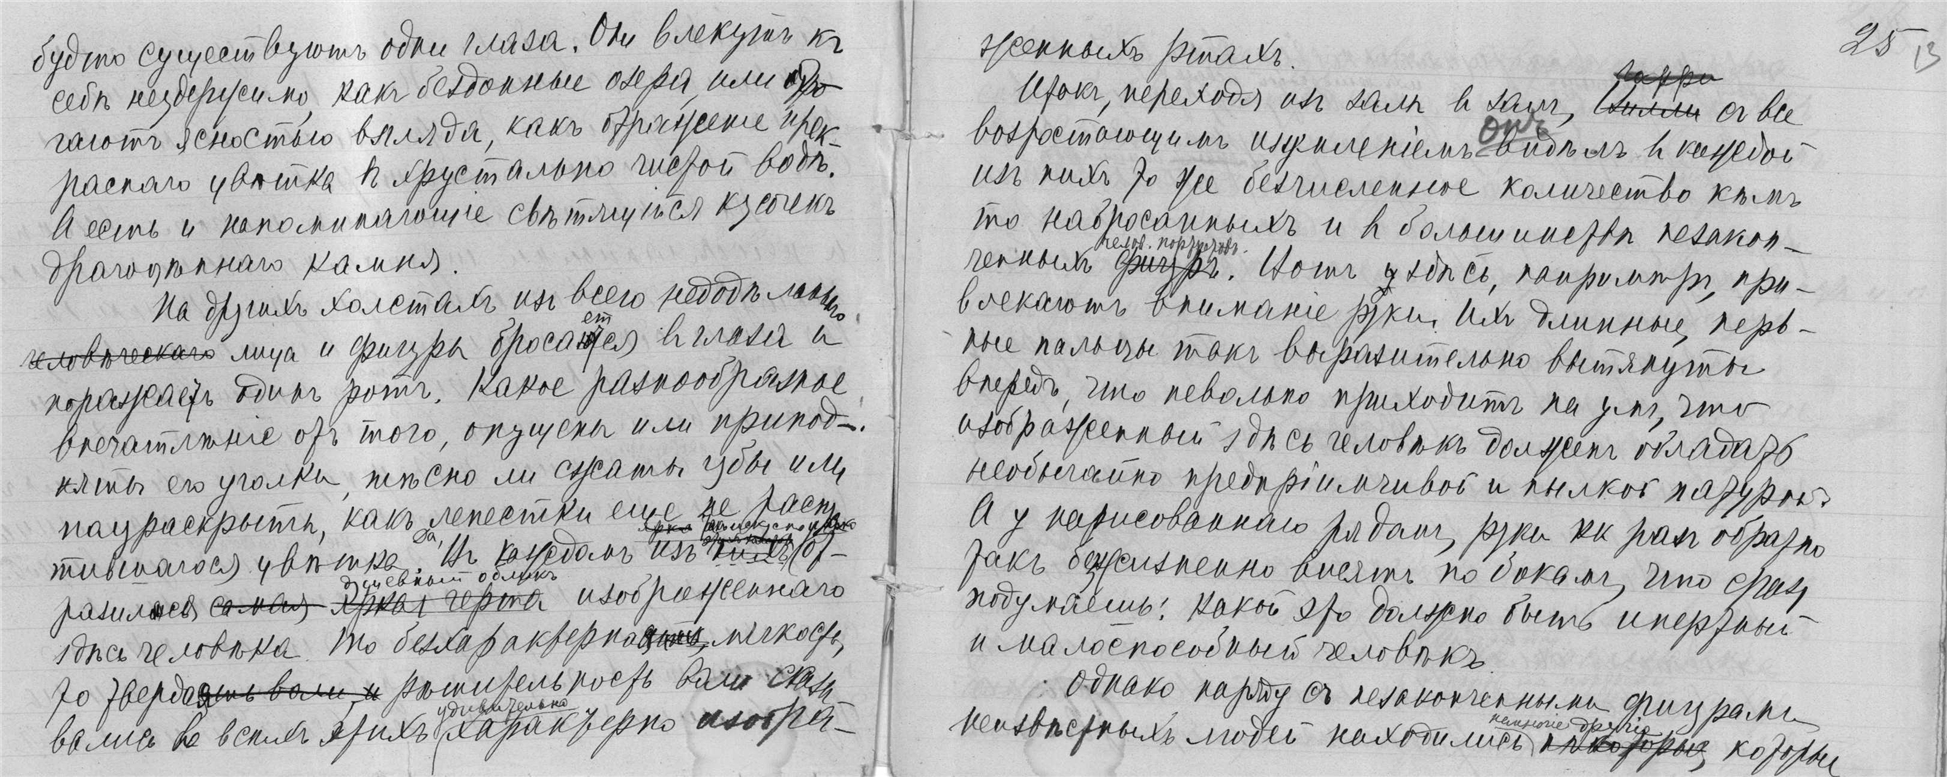 будто существуютъ одни глаза. Они влекутъ къ
себѣ неудержимо, какъ бездонные озера, или
гаютъ ясностью взгляда, какъ отраженіе прек-
раснаго цвѣтка въ хрустально чистой водѣ.
А есть и напоминающіе свѣтящійся кусочекъ
драгоцѣннаго камня.
На другихъ холстахъ изъ всего недодѣланнаго
человѣческаго лица и фигуры бросается въ глаза и
поражаетъ одинъ ротъ. Какое разнообразное
впечатлѣніе отъ того, опущены или припод-
няты его уголки, тѣсно ли сжаты губы или
полураскрыты, какъ лепестки еще не распу
стившагося цвѣтка. Въ каждомъ изъ нихъ от-
душевный обликъ
разился самая яркая черта изображеннаго
здѣсь человѣка. То безхарактерность, мягкость,
то твердость воли и рѣшительность воли сказы
удивительно
вались во всѣхъ этихъ характерно изобра-
25 13
женныхъ ртахъ.
Итакъ, переходя изъ залы въ залъ, съ все
возростающимъ изумленіемъ онъ видѣлъ въ каждой
изъ нихъ то же безчисленное количество кѣмъ
то набросанныхъ и въ большинствѣ незакон-
челов. портретовъ.
ченныхъ фигуръ. Вотъ здѣсь, напримѣръ, при-
влекаютъ вниманіе руки. Ихъ длинные, нерв-
ные пальцы такъ выразительно вытянуты
впередъ, что невольно приходитъ на умъ, что
изображенный здѣсь человѣкъ долженъ обладать
необычайно предпріимчивой и пылкой натурой.
А у нарисованнаго рядомъ, руки какъ разъ обратно
такъ безжизненно висятъ по бокамъ, что сразу
подумаешь: какой это должно быть инертный
и малоспособный человѣкъ.
Однако наряду съ незаконченными фигурами
неизвѣстныхъ людей находились и нѣкоторые, которые